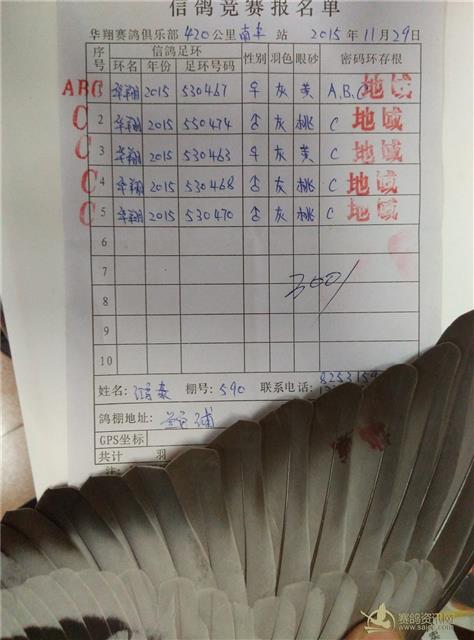 信鸽竞赛报名单
华翔赛鸽俱乐部 420 公里 南丰 站 2015 年 11 月 29 日
序号 信鸽足环 性别 羽色 眼砂 密码环存根
环名 年份 足环号码
ABC 1 华翔 2015 530467 ♀ 灰 黄 A,B,C 地域
C 2 华翔 2015 550474 ♂ 灰 桃 C 地域
C 3 华翔 2015 530463 ♀ 灰 黄 C 地域
C 4 华翔 2015 530468 ♂ 灰 桃 C 地域
C 5 华翔 2015 530470 ♂ 灰 桃 C 地域
6
7
300/
8
9
10
姓名: 棚号: 590 联系电话:
鸽棚地址:
GPS坐标
共计 羽
注:
赛鸽资讯网